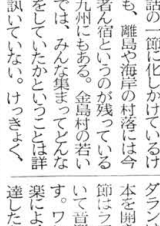 話の一節に化しかけているけ
も、離島や海岸の村落には今
者ん宿というのが残っている
九州にもある。金島村の若い
では、みんな集まってどんな
をしていたかということは詳
訊いていない。けっきょく、
ダラン
本を開
節はラ
いて音
す。ワ
楽によ
達した